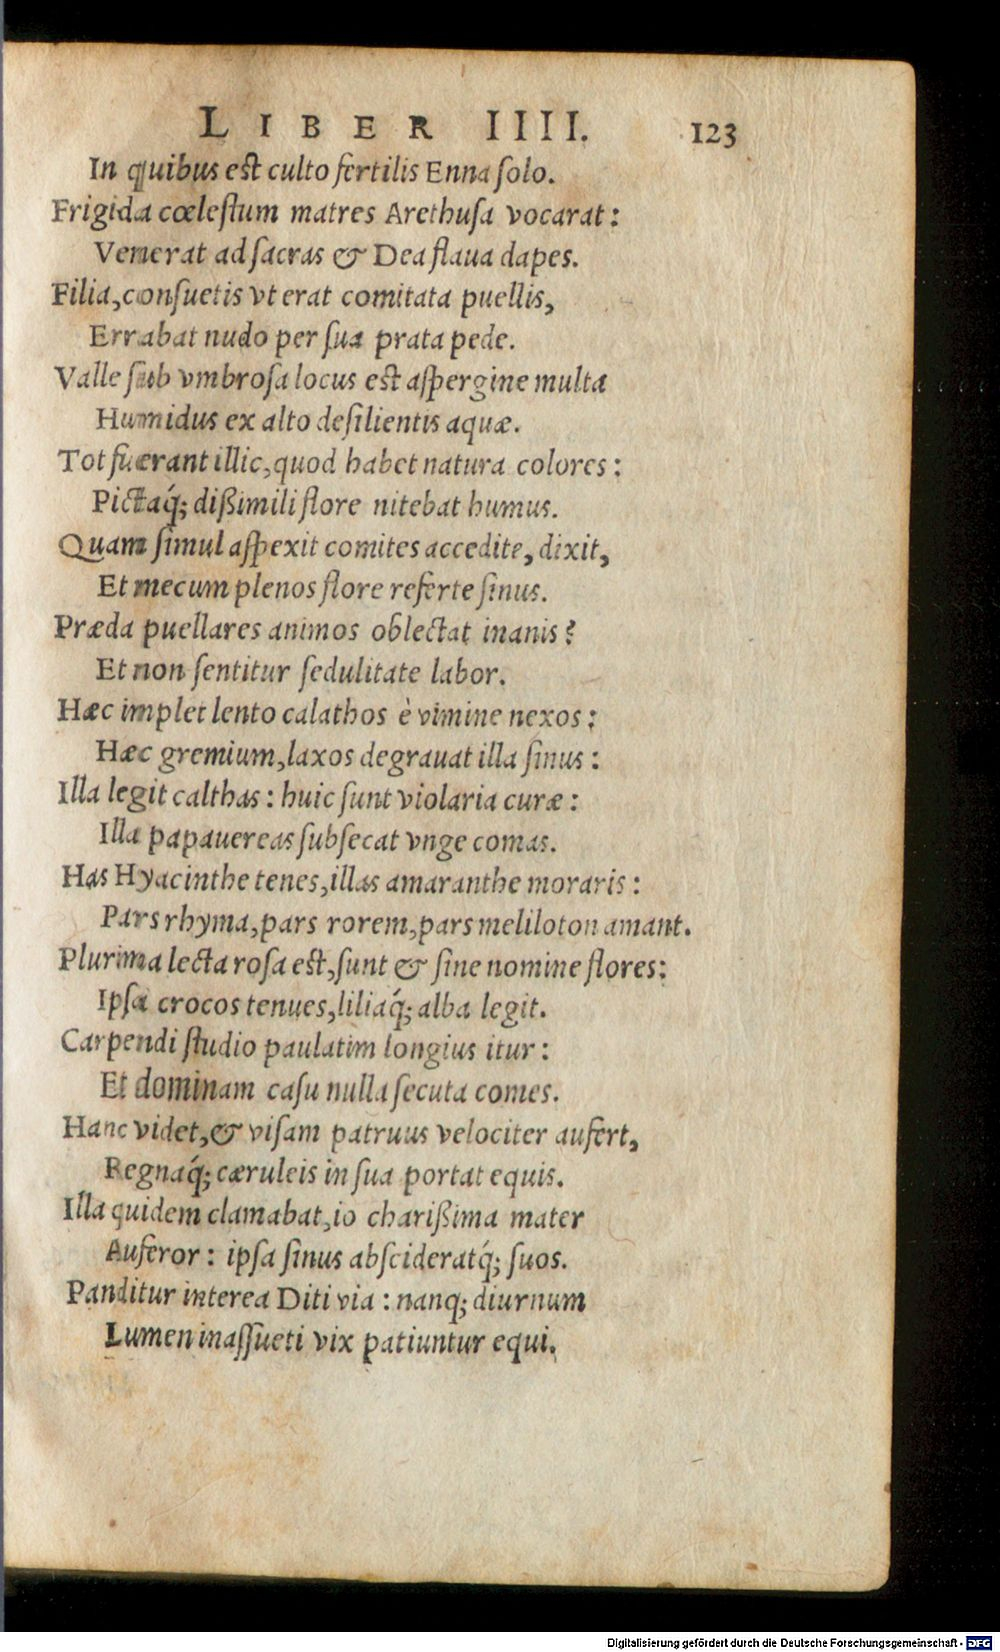 LIBER IIII. 123
In quibus est culto fertilis Enna solo.
Frigida cœlestum matres Arethusa vocarat:
Venerat ad sacras & Dea flaua dapes.
Filia, consuetis vt erat comitata puellis,
Errabat nudo per sua prata pede.
Valle sub vmbrosa locus est aspergine multa
Humidus ex alto desilientis aquæ.
Tot fuerant illic, quod habet natura colores:
Pictaq́; dißimili flore nitebat humus.
Quam simul aspexit comites accedite, dixit,
Et mecum plenos flore referte sinus.
Præda puellares animos oblectat inanis?
Et non sentitur sedulitate labor.
Hæc implet lento calathos è vimine nexos:
Hæc gremium, laxos degrauat illa sinus:
Illa legit calthas: huic sunt violaria curæ:
Illa papauereas subsecat vnge comas.
Has Hyacinthe tenes, illas amaranthe moraris:
Pars rhyma, pars rorem, pars meliloton amant.
Plurima lecta rosa est, sunt & sine nomine flores:
Ipsa crocos tenues, liliaq́; alba legit.
Carpendi studio paulatim longius itur:
Et dominam casu nulla secuta comes.
Hanc videt, & visam patruus velociter aufert,
Regnaq́; cæruleis in sua portat equis.
Illa quidem clamabat, io charißima mater
Auferor: ipsa sinus abscideratq́; suos.
Panditur interea Diti via: nanq; diurnum
Lumen inassueti vix patiuntur equi.
Digitalisierung gefördert durch die Deutsche Forschungsgemeinschaft - DFG